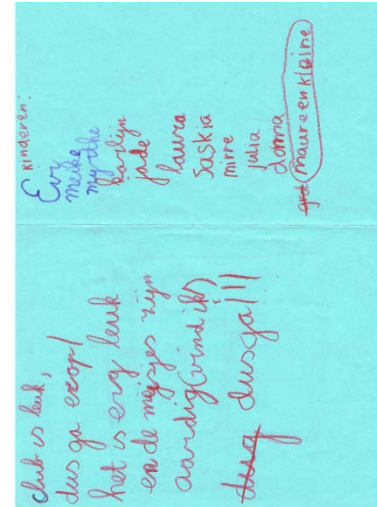 club is leuk,
dus ga erop!
het is erg leuk
en de mijsjes zijn
aardig (vind ik)
dusg dusga!!!
kinderen:
Evy
meike
mydhe
karlijn
jade
laura
saskia
mirre
julia
donna
maureen kleine